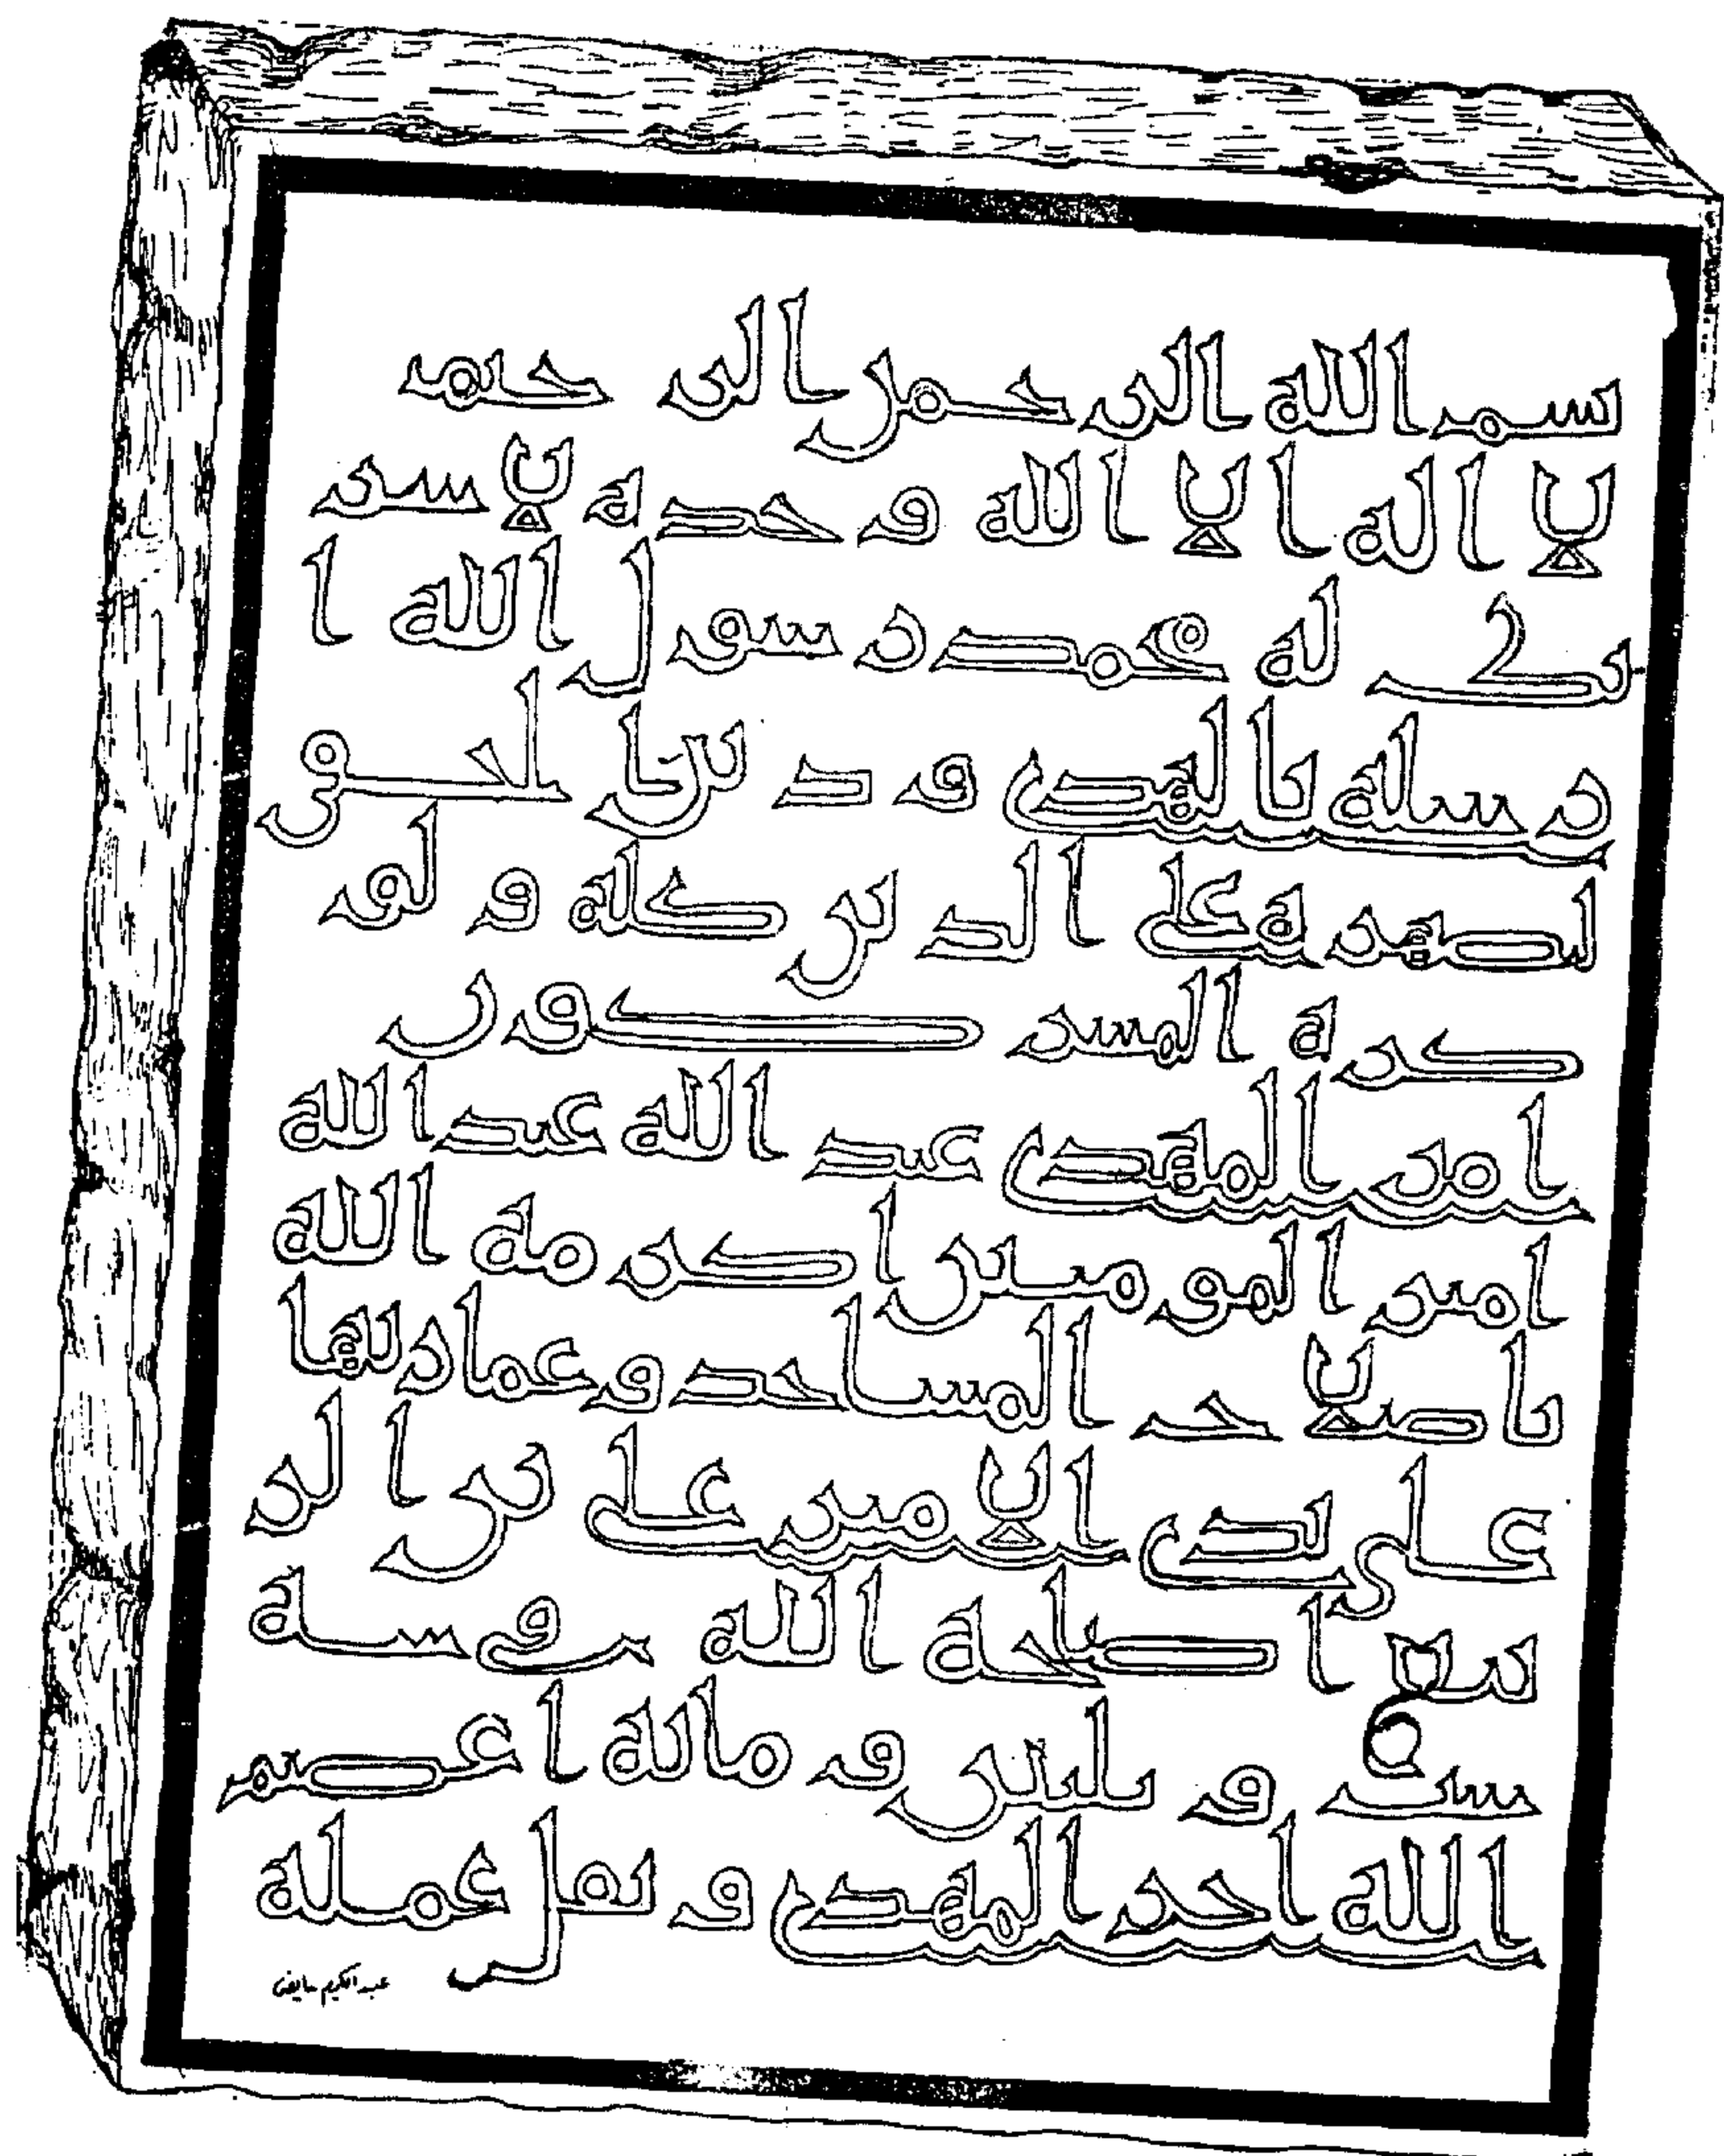 بسم الله الرحمن الرحيم
لا اله الا الله وحده لا شر
يك له محمد رسول الله ا
رسله بالهدى ودين الحق
ليظهره على الدين كله ولو
كره المشركون
امر المهدي عبد الله عبد الله
امير المومنين اكرمه الله
باصلاح المساجد وعمارتها
على يدي الامير علي بن الر
بيع اصلحه الله في سنة
ست وثلثين ومائة اعظم
الله اجر المهدي وتقبل عمله
عبد الكريم